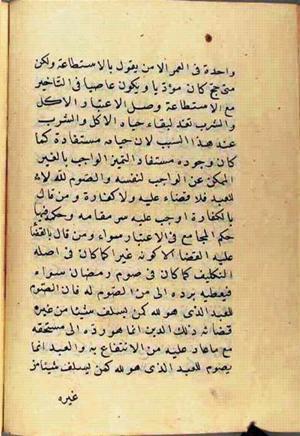 واحدة في العمر الا من يقول بالاستطاعة ولكن
متى حج كان مؤديا ويكون عاصيا في التاخير
مع الاستطاعة وصل الاعتبار الاكل
والشرب تغذ لبقاء حياه الاكل والشرب
عند هذا السبب لان حياته مستفادة كما
كان وجوده مستفادا لتميز الواجب بالغير
الممكن عن الواجب لنفسه والصوم لله لا
للعبد فلا قضاء عليه ولا كفارة ومن قال
بالكفارة اوجب عليه ستر مقامه وحكم فيها
حكم المجامع في الاعتبار سواء ومن قال بالقضا
عليه القضا لا كونه غيرا كما كان في اصله
التكليف كما كان في صوم رمضان سواء
فيعطيه برده الى من الصوم له فان الصوم
للعبد الذى هو لله كمن يستلف شيئا من غيره
قضائه ذلك الدين انما هو رده الى مستحقه
مع ما عاد عليه من الانتفاع به والعبد انما
يصوم للعبد الذى هو لله كمن يستلف شيئا من
غيره